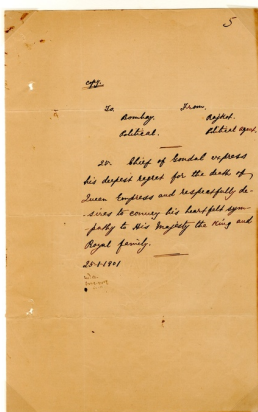 5
Copy.
To From
Bombay. Rajkot.
Political. Political Agent.
20. Chief of Gondal express
his deepest regret for the death of
Queen Empress and respectfully de-
sires to convey his heartfelt sym-
-pathy to His Majesty the King and
Royal family.
25-1-1901